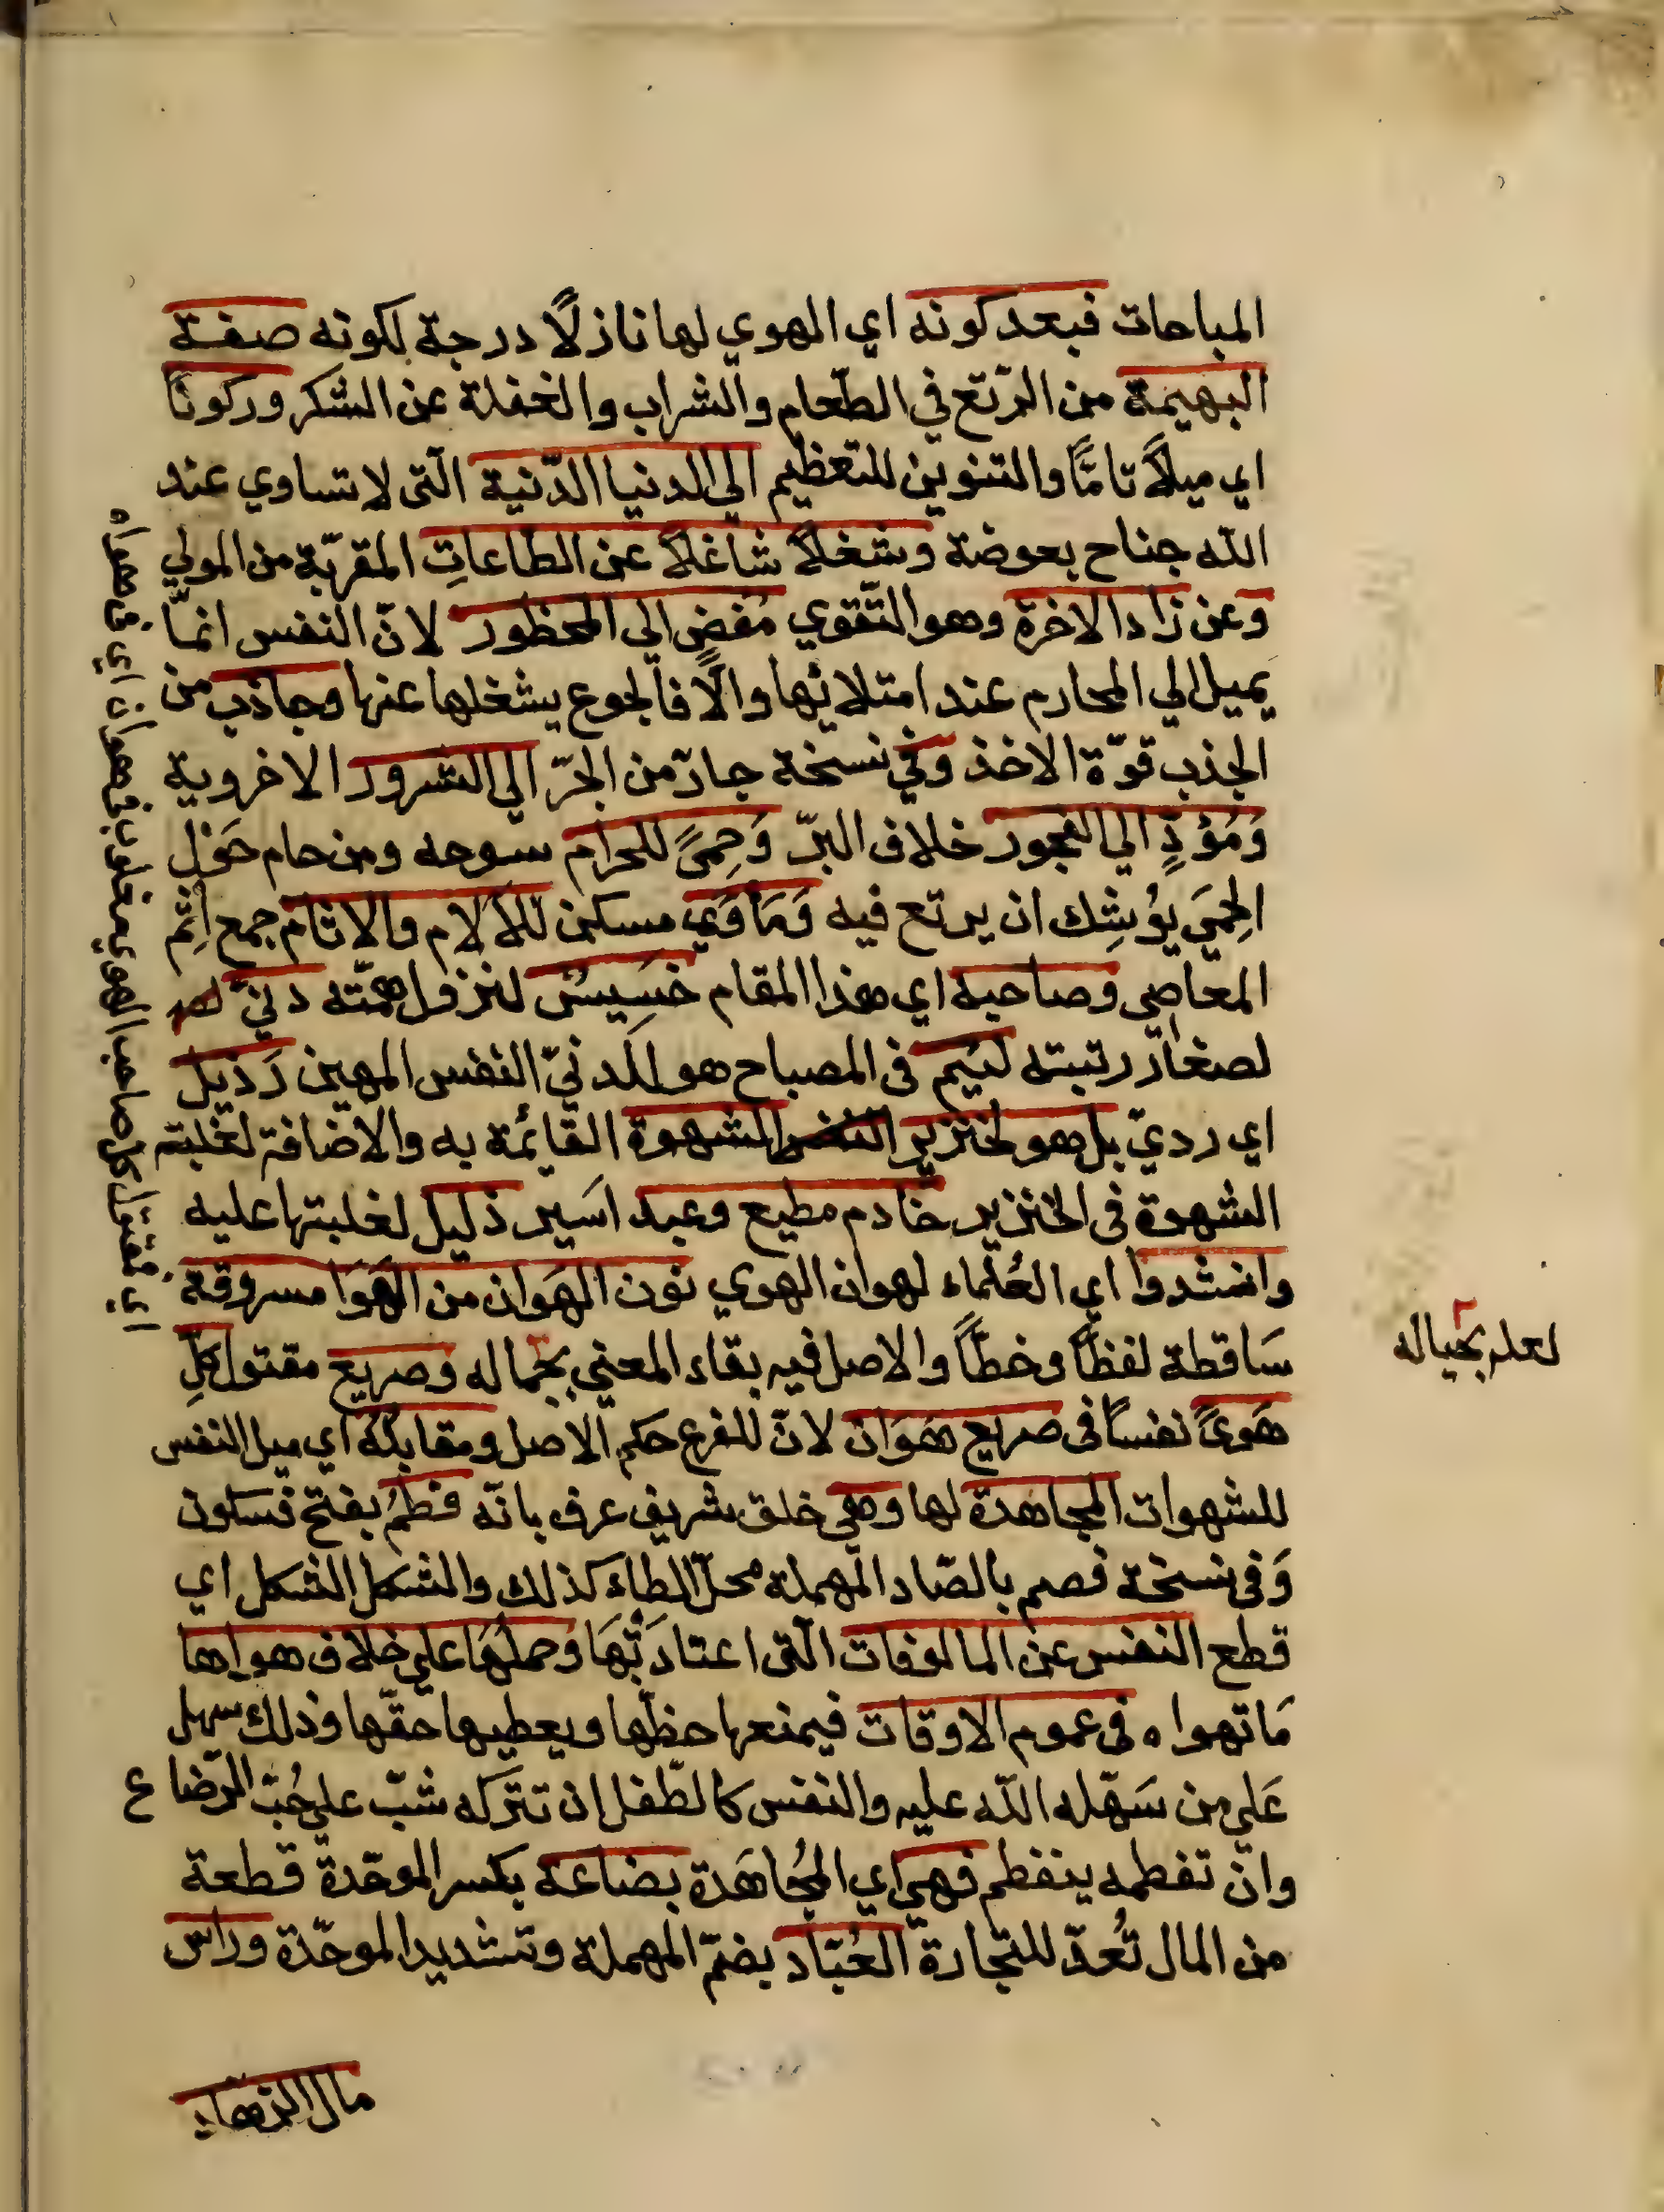 المباحات فبعد كونه اي الهوي لها نازلًا درجة لكونه صفة
البهيمة من الرّتع في الطّعام والشراب والغفلة عن الشكر وركونًا
اي ميلًا تامًّا والتنوين للتعظيم الي الدنيا الدّنية الّتى لا تساوي عند
الله جناح بعوضة وشغلًا شاغلًا عن الطاعاتِ المقربّة من المولي
وعن زاد الاخرة وهو التّقوي مُفضٍ الي المحظور لانّ النفس انمّا
يميل الي المحارم عند امتلائها والّا فالجوع يشغلها عنها وجاذب من
الجذب قوّة الاخذ وفي نسخة جارّ من الجرّ الي الشرور الاخروية
وَمُؤدٍّ الي الفجور خلاف البرّ وَحِمىً للحرام سوحه ومن حام حَوْل
الحِمَي يوُشِك ان يرتع فيه وَمَاوَي مسكن للألام والاثام جمع اِثم
المعاصي وصاحبه اي هذا المقام خَسِيسٌ لنزول همّته دنيّ
لصغار رتبته لئيم فى المصباح هو الدنيّ النفس المهين رَذيل
اي رديّ بل هو لخنزير الشهوة القائمة به والاضافة لغلبة
الشهوة فى الخنزير خادم مطيع وعبد اسَير ذليل لغلبتها عليه
وانشدوا اي العُلماء لهوان الهوي نون الهَوان من الهَوَا مسروقة
سَاقطة لفظاً وخطّاً والاصل فيه بقاء المعني بجماله وصريع مقتول كلِ
هَوىً نفساً فى صريع هَوَان لانّ للفرع حكم الاصل ومقابله اي ميل النفس
للشهوات المجاهدة لها وهي خلق شريف عرف بانّه فطمُ بفتح فسكون
وَفى نسخة فصم بالصّاد المهملة محلّ الطاء كذلك والشكل الشكل اي
قطع النفس عن المالوفات الّتى اعتادَتْهَا وحملُهَا علي خلاف هواها
مَا تهواه فى عموم الاوقات فيمنعها حظّها ويعطيها حقّها وذلك سهل
عَلي من سَهّله الله عليه والنفس كالطّفل ان تتركه شبّ علي حُبّ الرّضاع
وان تفطمه ينفطم فهي اي المجُاهَدة بضاعة بكسر الموحّدة قطعة
من المال تُعدّ للتجارة العُبّاد بضمّ المهملة وتشديد الموحّدة وراس
مال الزهاد
لعله بحياله